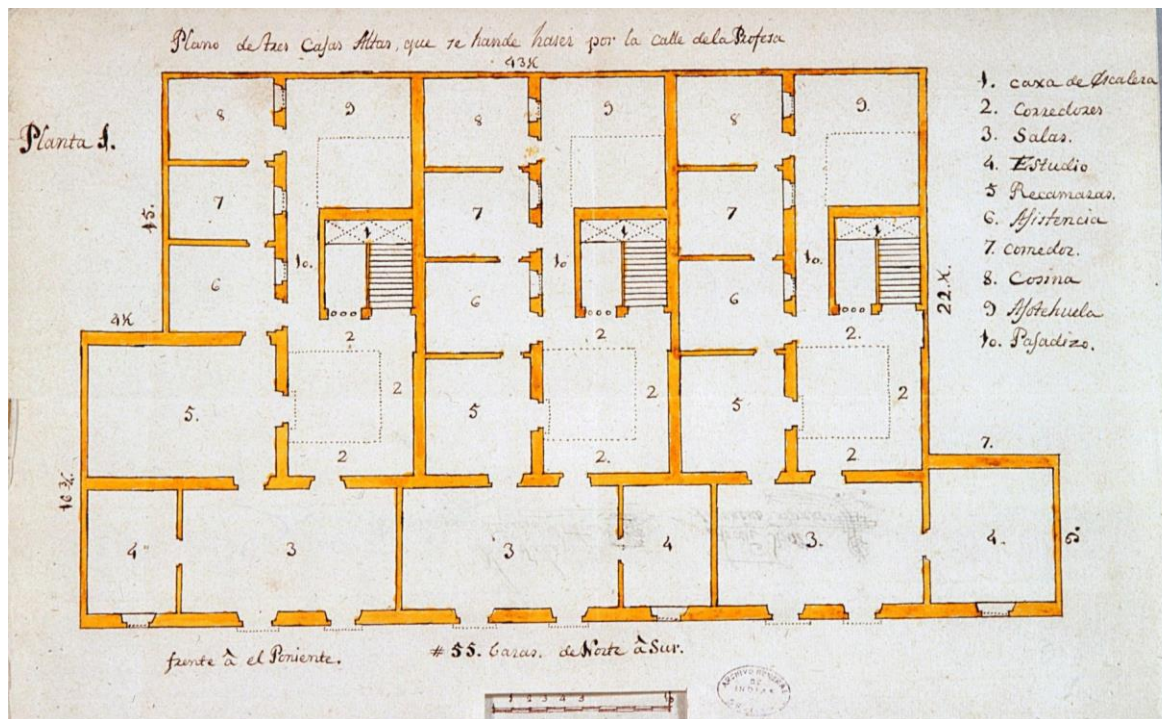 Plano de tres Casas Altas, que se hande haser por la calle de la Profesa
43½
Planta 1.
1. caxa de escalera
2. Corredores
3. Salas.
4. Estudio
5 Recamaras.
6. Asistencia
7. Comedor.
8. Cosina
9 Asotehuela
10. Pasadizo.
8 9 8 9 8 9.
15.
7 7 7
1 1 1
10. 10 10.
6 6 6
22.½.
4½
2 2 2.
5. 2 5 2 5 2
7.
2 2. 2
10¾.
4 3 3 4 3. 4.
frente à el Poniente.
# 55. baras. de Norte à Sur.
1 2 3 4 5 10
ARCHIVO GENERAL
DE
INDIAS